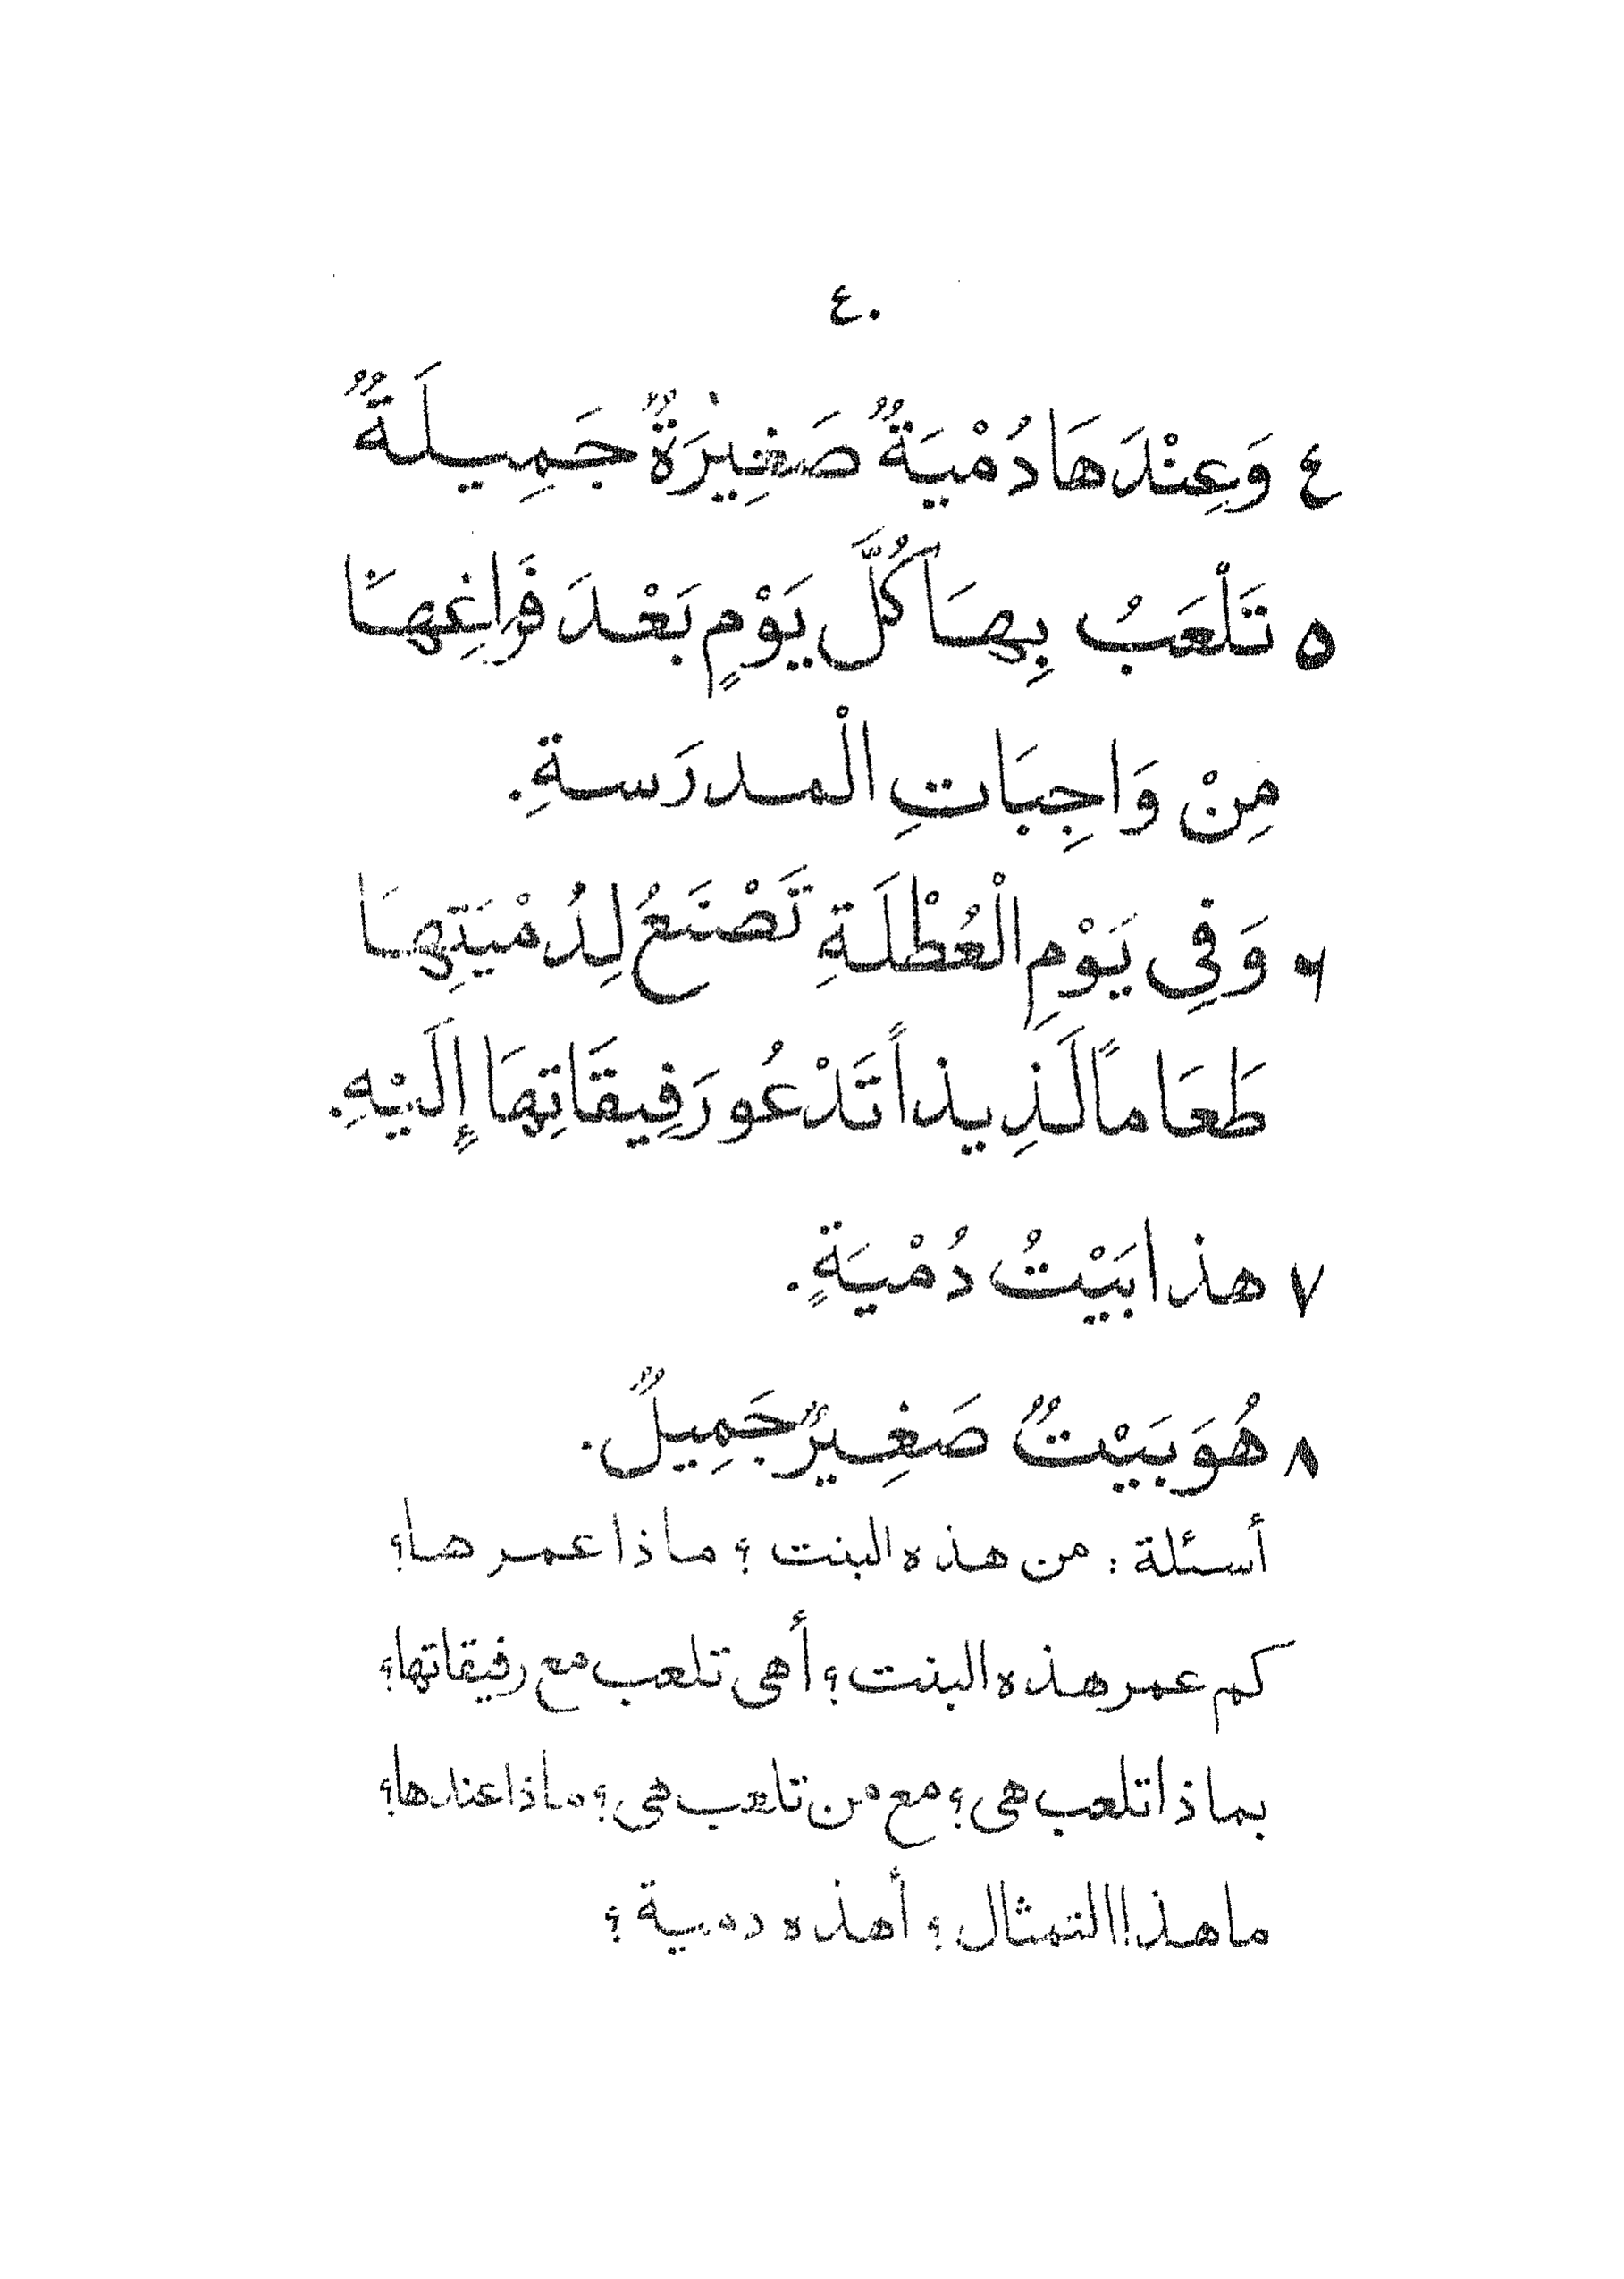 ٤٠
٤ وَعِنْدَهَا دُمْيَةٌ صَغِيْرَةٌ جَمِيلَةٌ
٥ تَلْعَبُ بِهَا كُلَّ يَوْمٍ بَعْدَ فَرَاغِهَا
مِنْ وَاجِبَاتِ الْمدرَسةِ.
٦ وَفِي يَوْمِ الْعُطْلَةِ تَصْنَعُ لِدُمْيَتِهَا
طَعَاماً لَذِيذاً تَدْعُو رَفِيقَاتِهَا إِلَيْهِ.
٧ هذا بَيْتُ دُمْيَةٍ.
٨ هُوَ بَيْتٌ صَغِيرٌ جَمِيلٌ.
أسئلة : من هذه البنت ؟ ماذا عمرها؟
كم عمر هذه البنت ؟ أهى تلعب مع رفيقاتها؟
بماذا تلعب هى ؟ مع من تلعب هى ؟ ماذا عندها؟
ما هذا التمثال ؟ أهذه دمية ؟